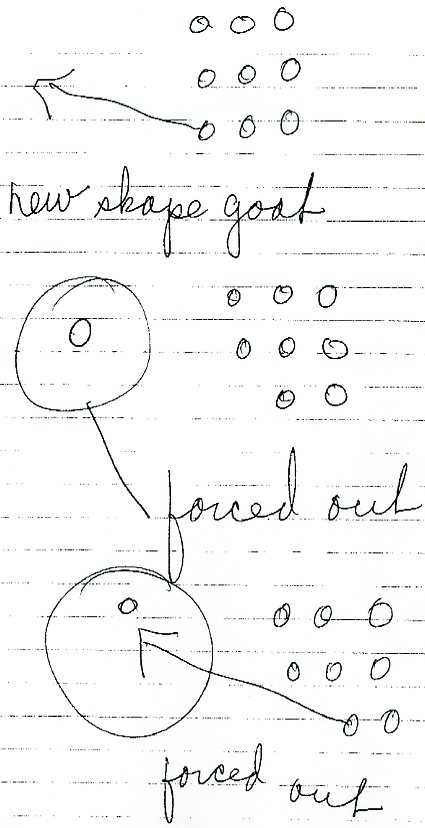 new skape goat
forced out
forced out